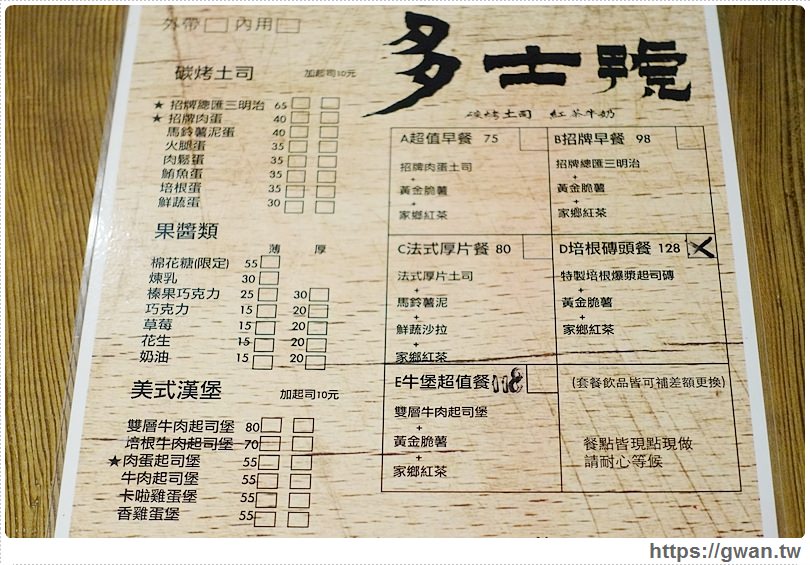 外帶 內用
多士號
碳烤土司 紅茶牛奶
碳烤土司 加起司10元
★ 招牌總匯三明治 65
★ 招牌肉蛋 40
馬鈴薯泥蛋 40
火腿蛋 35
肉鬆蛋 35
鮪魚蛋 35
培根蛋 35
鮮蔬蛋 30
果醬類 薄 厚
棉花糖(限定) 55
煉乳 30
榛果巧克力 25 30
巧克力 15 20
草莓 15 20
花生 15 20
奶油 15 20
美式漢堡 加起司10元
雙層牛肉起司堡 80
培根牛肉起司堡 70
★肉蛋起司堡 55
牛肉起司堡 55
卡啦雞蛋堡 55
香雞蛋堡 55
A超值早餐 75
招牌肉蛋土司
+
黃金脆薯
+
家鄉紅茶
B招牌早餐 98
招牌總匯三明治
+
黃金脆薯
+
家鄉紅茶
C法式厚片餐 80
法式厚片土司
+
馬鈴薯泥
+
鮮蔬沙拉
+
家鄉紅茶
D培根磚頭餐 128
特製培根爆漿起司磚
+
黃金脆薯
+
家鄉紅茶
E牛堡超值餐 118
雙層牛肉起司堡
+
黃金脆薯
+
家鄉紅茶
(套餐飲品皆可補差額更換)
餐點皆現點現做
請耐心等候
https://gwan.tw